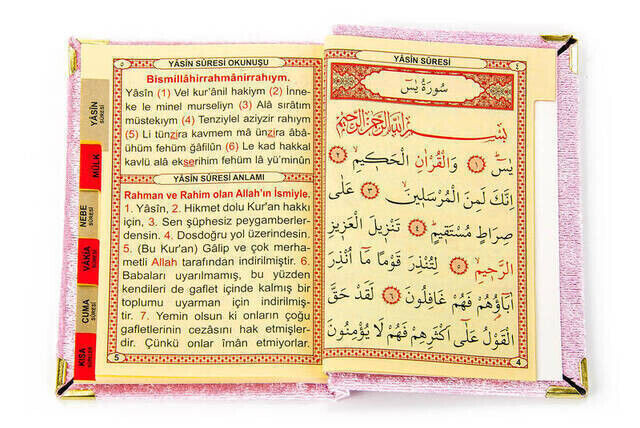 YÂSİN
SÛRESİ
MÜLK
NEBE
SÛRESİ
VÂKIA
CUMA
SÛRESİ
KISA
٥
YÂSİN SÛRESİ OKUNUŞU
Bismillâhirrahmânirrahıym.
Yâsîn (1) Vel kur'ânil hakiym (2) İnne-
ke le minel murseliyn (3) Alâ sırâtım
müstekıym (4) Tenziylel aziyzir rahıym
(5) Li tünzira kavmem mâ ünzira âbâ-
ühüm fehüm gâfilûn (6) Le kad hakkal
kavlü alâ ekserihim fehüm lâ yü'minûn
YÂSİN SÛRESİ ANLAMI
Rahman ve Rahim olan Allah'ın İsmiyle.
1. Yâsîn, 2. Hikmet dolu Kur'an hakkı
için, 3. Sen şüphesiz peygamberler-
densin. 4. Dosdoğru yol üzerindesin.
5. (Bu Kur'an) Gâlip ve çok merha-
metli Allah tarafından indirilmiştir. 6.
Babaları uyarılmamış, bu yüzden
kendileri de gaflet içinde kalmış bir
toplumu uyarman için indirilmiş-
tir. 7. Yemin olsun ki onların çoğu
gafletlerinin cezasını hak etmişler-
dir. Çünkü onlar îmân etmiyorlar.
5
YÂSİN SÛRESİ
٤
سُورَةُ يٰسٓ
بِسْمِ اللّٰهِ الرَّحْمٰنِ الرَّحِيمِ
يٰسٓ ۚ ١ وَالْقُرْاٰنِ الْحَكِيمِۙ ٢
اِنَّكَ لَمِنَ الْمُرْسَلِينَۙ ٣ عَلٰى
صِرَاطٍ مُسْتَقِيمٍۜ ٤ تَنْزِيلَ الْعَزِيزِ
الرَّحِيمِۙ ٥ لِتُنْذِرَ قَوْمًا مَٓا اُنْذِرَ
اٰبَٓاؤُهُمْ فَهُمْ غَافِلُونَ ٦ لَقَدْ حَقَّ
الْقَوْلُ عَلٰٓى اَكْثَرِهِمْ فَهُمْ لَا يُؤْمِنُونَ
4